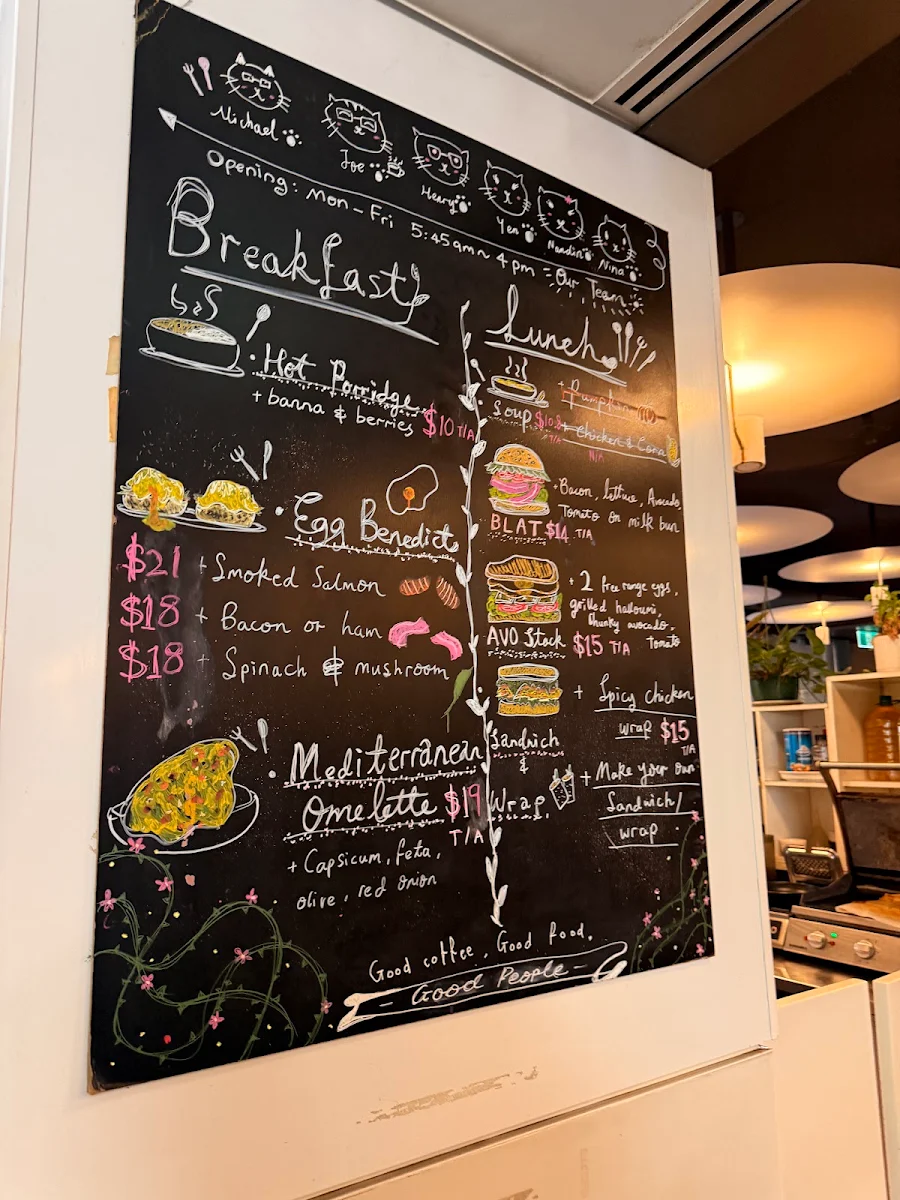 Michael
Joe
Henry
Yen
Nandin
Nina
Opening: Mon - Fri 5:45am ~ 4pm
Our Team
Breakfast
Hot Porridge
+ banna & berries $10 T/A
Egg Benedict
$21 + Smoked Salmon
$18 + Bacon or ham
$18 + Spinach & mushroom
Mediterranean
Omelette $19
T/A
+ Capsicum, feta,
olive, red onion
Lunch
+ Pumpkin
Soup
T/A
+ Chicken & Corn
N/A
+ Bacon, lettuce, Avocado,
Tomato on milk bun
BLAT $14 T/A
+ 2 free range eggs,
grilled halloumi,
Chunky avocado,
Tomato
AVO Stack $15 T/A
+ Spicy chicken
wrap $15
T/A
Sandwich
&
Wrap
+ Make your own
Sandwich/
wrap
Good coffee, Good food,
- Good People -